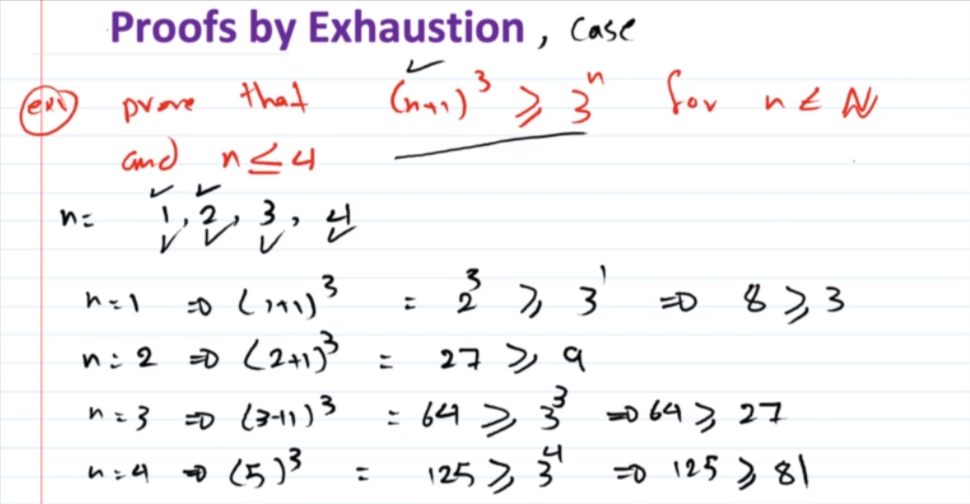 Proofs by Exhaustion, case
ex1 prove that (n+1)³ ≥ 3ⁿ for n ∈ ℕ
and n ≤ 4
n= 1, 2, 3, 4
n=1 ⇒ (1+1)³ = 2³ ≥ 3¹ ⇒ 8 ≥ 3
n=2 ⇒ (2+1)³ = 27 ≥ 9
n=3 ⇒ (3+1)³ = 64 ≥ 3³ ⇒ 64 ≥ 27
n=4 ⇒ (5)³ = 125 ≥ 3⁴ ⇒ 125 ≥ 81